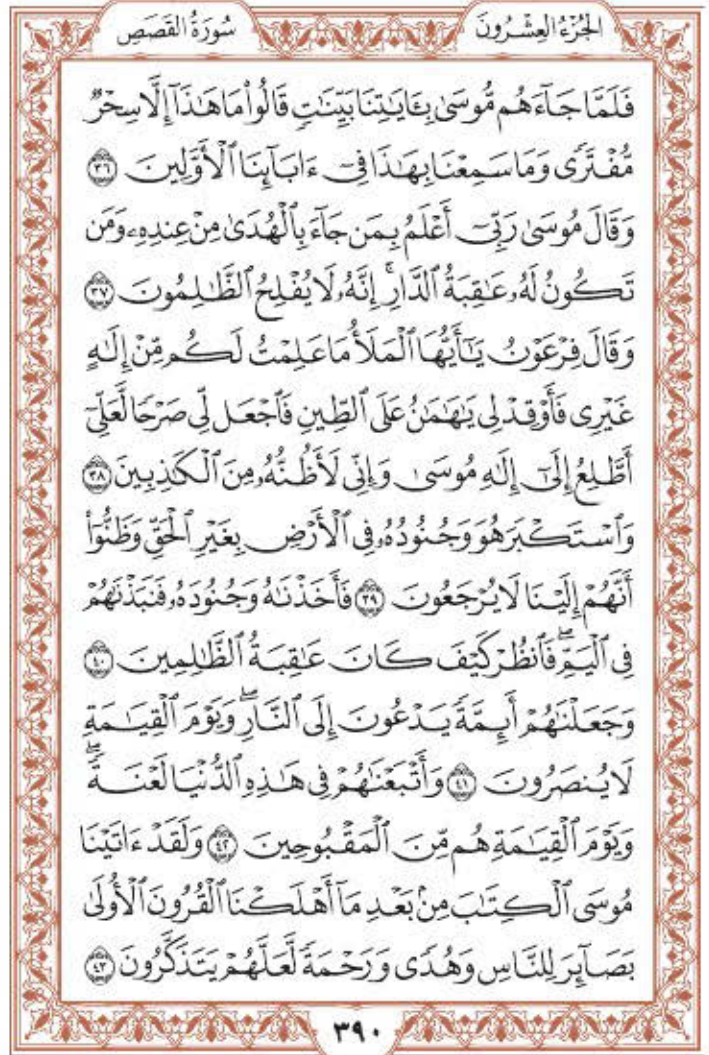 الجُزْءُ العِشْرُونَ سُورَةُ القَصَصِ
فَلَمَّا جَآءَهُم مُّوسَىٰ بِـَٔايَٰتِنَا بَيِّنَٰتٍ قَالُوا۟ مَا هَٰذَآ إِلَّا سِحْرٌ
مُّفْتَرًى وَمَا سَمِعْنَا بِهَٰذَا فِىٓ ءَابَآئِنَا ٱلْأَوَّلِينَ ٣٦
وَقَالَ مُوسَىٰ رَبِّىٓ أَعْلَمُ بِمَن جَآءَ بِٱلْهُدَىٰ مِنْ عِندِهِۦ وَمَن
تَكُونُ لَهُۥ عَٰقِبَةُ ٱلدَّارِ ۚ إِنَّهُۥ لَا يُفْلِحُ ٱلظَّٰلِمُونَ ٣٧
وَقَالَ فِرْعَوْنُ يَٰٓأَيُّهَا ٱلْمَلَأُ مَا عَلِمْتُ لَكُم مِّنْ إِلَٰهٍ
غَيْرِى فَأَوْقِدْ لِى يَٰهَٰمَٰنُ عَلَى ٱلطِّينِ فَٱجْعَل لِّى صَرْحًا لَّعَلِّىٓ
أَطَّلِعُ إِلَىٰٓ إِلَٰهِ مُوسَىٰ وَإِنِّى لَأَظُنُّهُۥ مِنَ ٱلْكَٰذِبِينَ ٣٨
وَٱسْتَكْبَرَ هُوَ وَجُنُودُهُۥ فِى ٱلْأَرْضِ بِغَيْرِ ٱلْحَقِّ وَظَنُّوٓا۟
أَنَّهُمْ إِلَيْنَا لَا يُرْجَعُونَ ٣٩ فَأَخَذْنَٰهُ وَجُنُودَهُۥ فَنَبَذْنَٰهُمْ
فِى ٱلْيَمِّ ۖ فَٱنظُرْ كَيْفَ كَانَ عَٰقِبَةُ ٱلظَّٰلِمِينَ ٤٠
وَجَعَلْنَٰهُمْ أَئِمَّةً يَدْعُونَ إِلَى ٱلنَّارِ ۖ وَيَوْمَ ٱلْقِيَٰمَةِ
لَا يُنصَرُونَ ٤١ وَأَتْبَعْنَٰهُمْ فِى هَٰذِهِ ٱلدُّنْيَا لَعْنَةً ۖ
وَيَوْمَ ٱلْقِيَٰمَةِ هُم مِّنَ ٱلْمَقْبُوحِينَ ٤٢ وَلَقَدْ ءَاتَيْنَا
مُوسَى ٱلْكِتَٰبَ مِنۢ بَعْدِ مَآ أَهْلَكْنَا ٱلْقُرُونَ ٱلْأُولَىٰ
بَصَآئِرَ لِلنَّاسِ وَهُدًى وَرَحْمَةً لَّعَلَّهُمْ يَتَذَكَّرُونَ ٤٣
٣٩٠